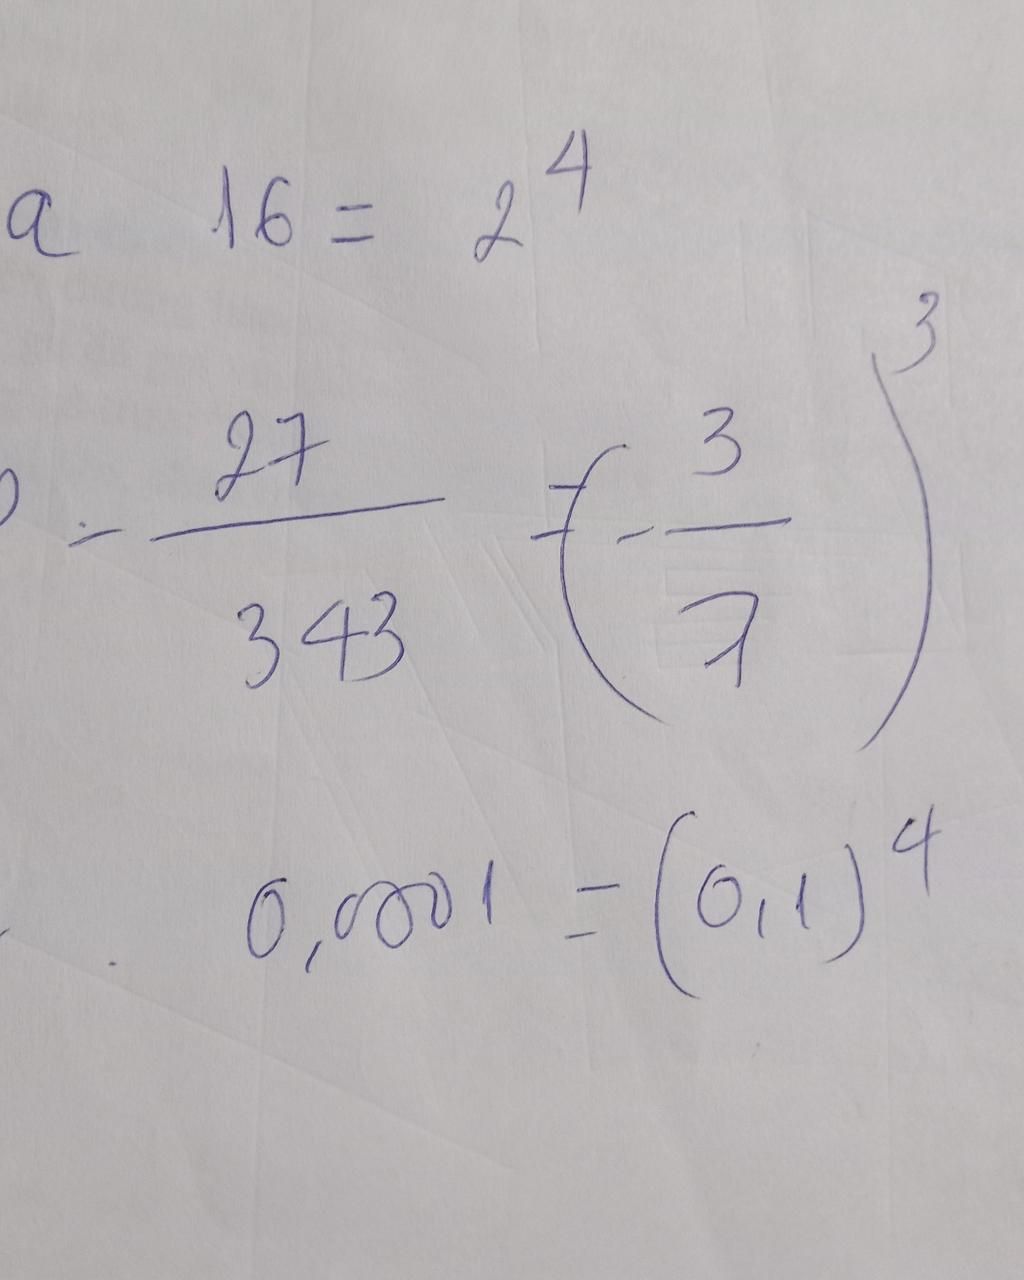 a 16 = 2⁴
- 27/343 = (- 3/7)³
0,0001 = (0,1)⁴